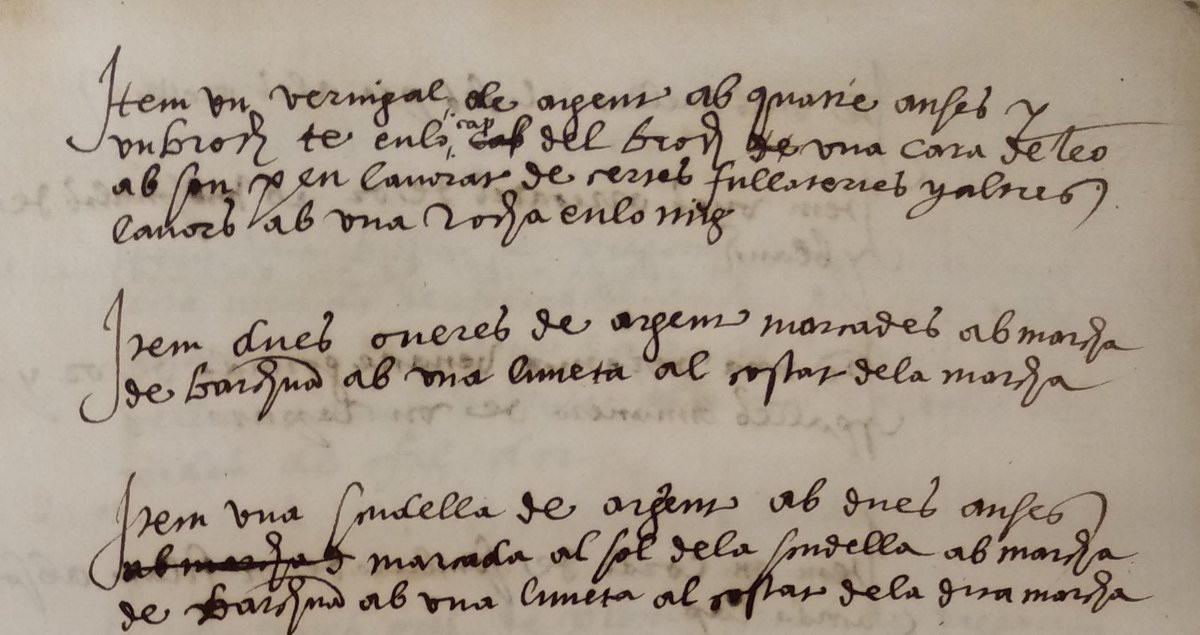 Item un vernigal de argent ab quatre anses y
un broch te enlo cap del broch una cara de leo
ab son peu laurat de certes fullateries y altres
lauors ab una rocha enlo mig
Item dues oueres de argent marcades ab marcha
de Barchna ab una luneta al costat dela marcha
Item una scudella de argent ab dues anses
ab marcha d marcada al sol dela scudella ab marcha
de Barchna ab una luneta al costat dela dita marcha